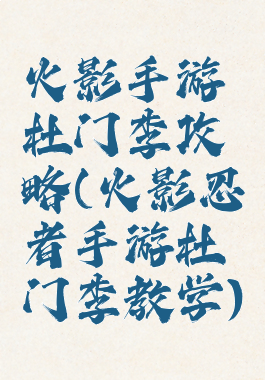 火影手游
杜门李攻
略(火影忍
者手游杜
门李教学)